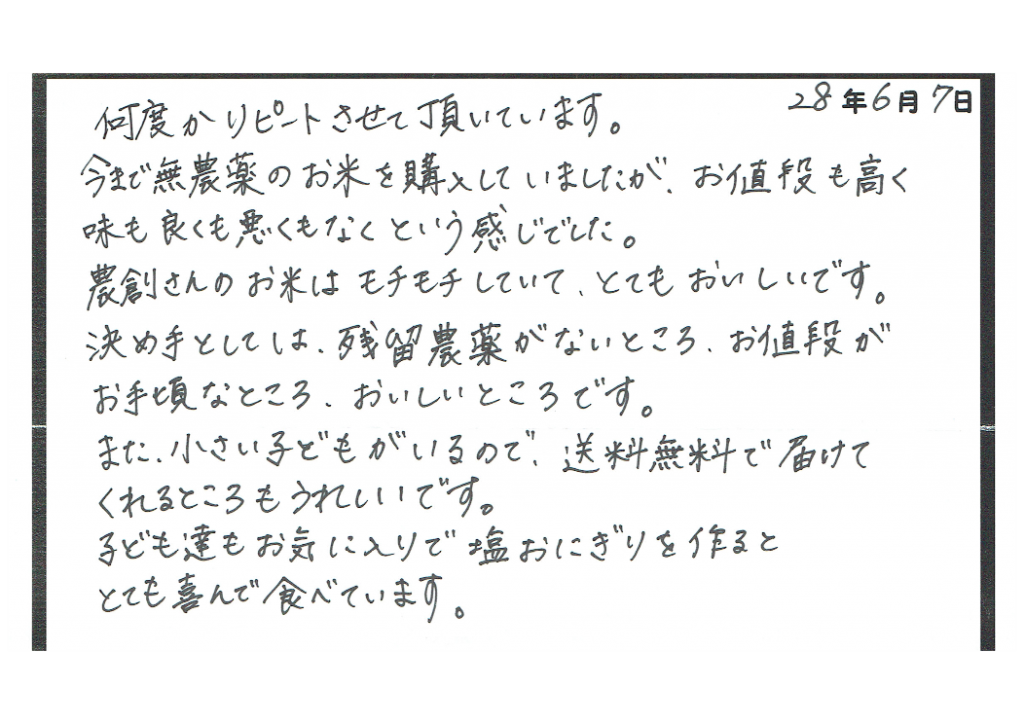 28年6月7日
何度かリピートさせて頂いています。
今まで無農薬のお米を購入していましたが、お値段も高く
味も良くも悪くもなくという感じでした。
農創さんのお米はモチモチしていて、とてもおいしいです。
決め手としては、残留農薬がないところ、お値段が
お手頃なところ、おいしいところです。
また、小さい子どもがいるので、送料無料で届けて
くれるところもうれしいです。
子ども達もお気に入りで塩おにぎりを作ると
とても喜んで食べています。